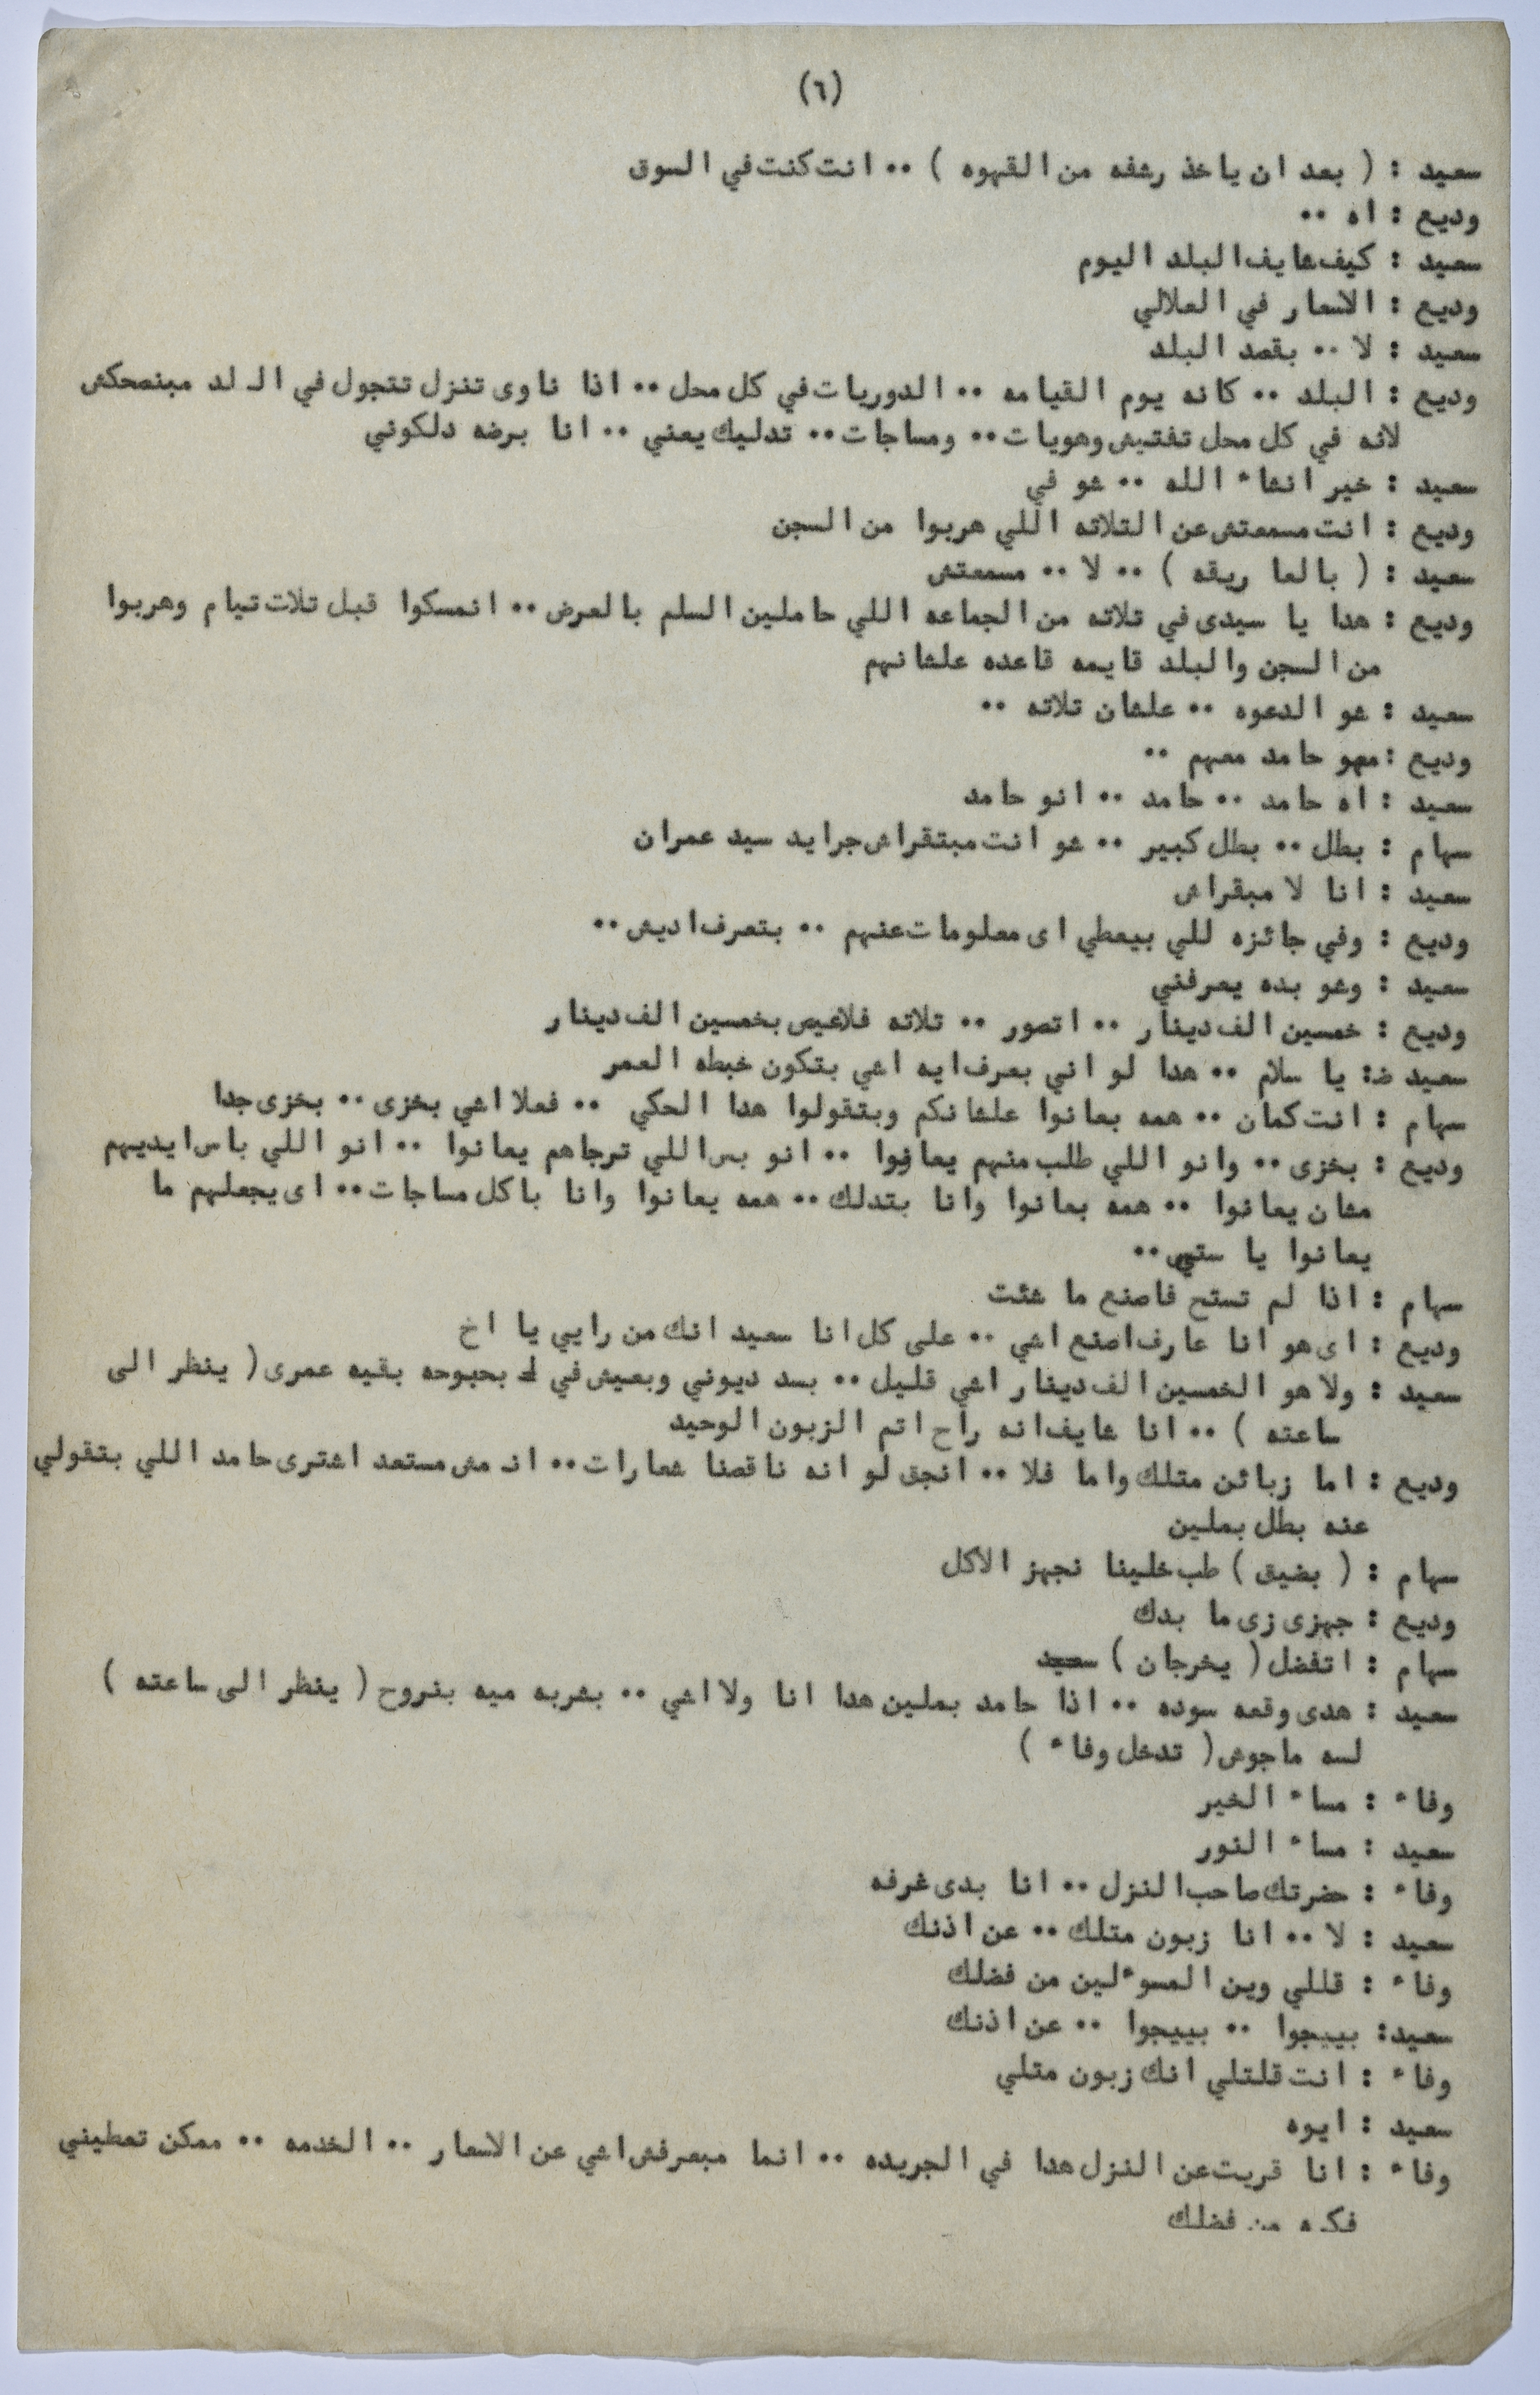 (٦)
سعيد : ( بعد ان ياخذ رشفه من القهوه ) ٠٠ انت كنت في السوق
وديع : اه ٠٠
سعيد : كيف شايف البلد اليوم
وديع : الاسعار في العلالي
سعيد : لا ٠٠ بقصد البلد
وديع : البلد ٠٠ كانه يوم القيامه ٠٠ الدوريات في كل محل ٠٠ اذا ناوى تنزل تتجول في الـ لد مبنصحكش
لانه في كل محل تفتيش وهويات ٠٠ ومساجات ٠٠ تدليك يعني ٠٠ انا برضه دلكوني
سعيد : خير انشاء الله ٠٠ شو في
وديع : انت مسمعتش عن التلاته اللي هربوا من السجن
سعيد : ( بالعا ريقه ) ٠٠ لا ٠٠ مسمعتش
وديع : هدا يا سيدى في تلاته من الجماعه اللي حاملين السلم بالعرض ٠٠ انمسكوا قبل تلات تيام وهربوا
من السجن والبلد قايمه قاعده علشانهم
سعيد : شو الدعوه ٠٠ علشان تلاته ٠٠
وديع : مهو حامد معهم ٠٠
سعيد : اه حامد ٠٠ حامد ٠٠ انو حامد
سهام : بطل ٠٠ بطل كبير ٠٠ شو انت مبتقراش جرايد سيد عمران
سعيد : انا لا مبقراش
وديع : وفي جائزه للي بيعطي اى معلومات عنهم ٠٠ بتعرف اديش ٠٠
سعيد : وشو بده يعرفني
وديع : خمسين الف دينار ٠٠ اتصور ٠٠ تلاته فلاعيص بخمسين الف دينار
سعيد ض: يا سلام ٠٠ هدا لو اني بعرف ايه اشي بتكون خبطه العمر
سهام : انت كمان ٠٠ همه بعانوا علشانكم وبتقولوا هدا الحكي ٠٠ فعلا اشي بخزى ٠٠ بخزى جدا
وديع : بخزى ٠٠ وانو اللي طلب منهم يعانوا ٠٠ انو بس اللي ترجاهم يعانوا ٠٠ انو اللي باس ايديهم
مشان يعانوا ٠٠ همه بعانوا وانا بتدلك ٠٠ همه يعانوا وانا باكل مساجات ٠٠ اى يجعلهم ما
يعانوا يا ستي ٠٠
سهام : اذا لم تستح فاصنع ما شئت
وديع : اى هو انا عارف اصنع اشي ٠٠ على كل انا سعيد انك من رايي يا اخ
سعيد : ولا هو الخمسين الف دينار اشي قليل ٠٠ بسد ديوني وبعيش في بحبوحه بقيه عمرى ( ينظر الى
ساعته ) ٠٠ انا شايف انه راح اتم الزبون الوحيد
وديع : اما زبائن متلك واما فلا ٠٠ انجق لو انه ناقصنا شعارات ٠٠ انـ مش مستعد اشترى حامد اللي بتقولي
عنه بطل بملين
سهام : ( بضيق ) طب خلينا نجهز الاكل
وديع : جهزى زى ما بدك
سهام : اتفضل ( يخرجان ) سعيد
سعيد : هدى وقعه سوده ٠٠ اذا حامد بملين هدا انا ولا اشي ٠٠ بشربه ميه بنروح ( ينظر الى ساعته )
لسه ماجوش ( تدخل وفاء )
وفاء : مساء الخير
سعيد : مساء النور
وفاء : حضرتك صاحب النزل ٠٠ انا بدى غرفه
سعيد : لا ٠٠ انا زبون متلك ٠٠ عن اذنك
وفاء : قللي وين المسوءلين من فضلك
سعيد: بييجوا ٠٠ بييجوا ٠٠ عن اذنك
وفاء : انت قلتلي انك زبون متلي
سعيد : ايوه
وفاء : انا قريت عن النزل هدا في الجريده ٠٠ انما مبعرفش اشي عن الاسعار ٠٠ الخدمه ٠٠ ممكن تعطيني
فكره من فضلك